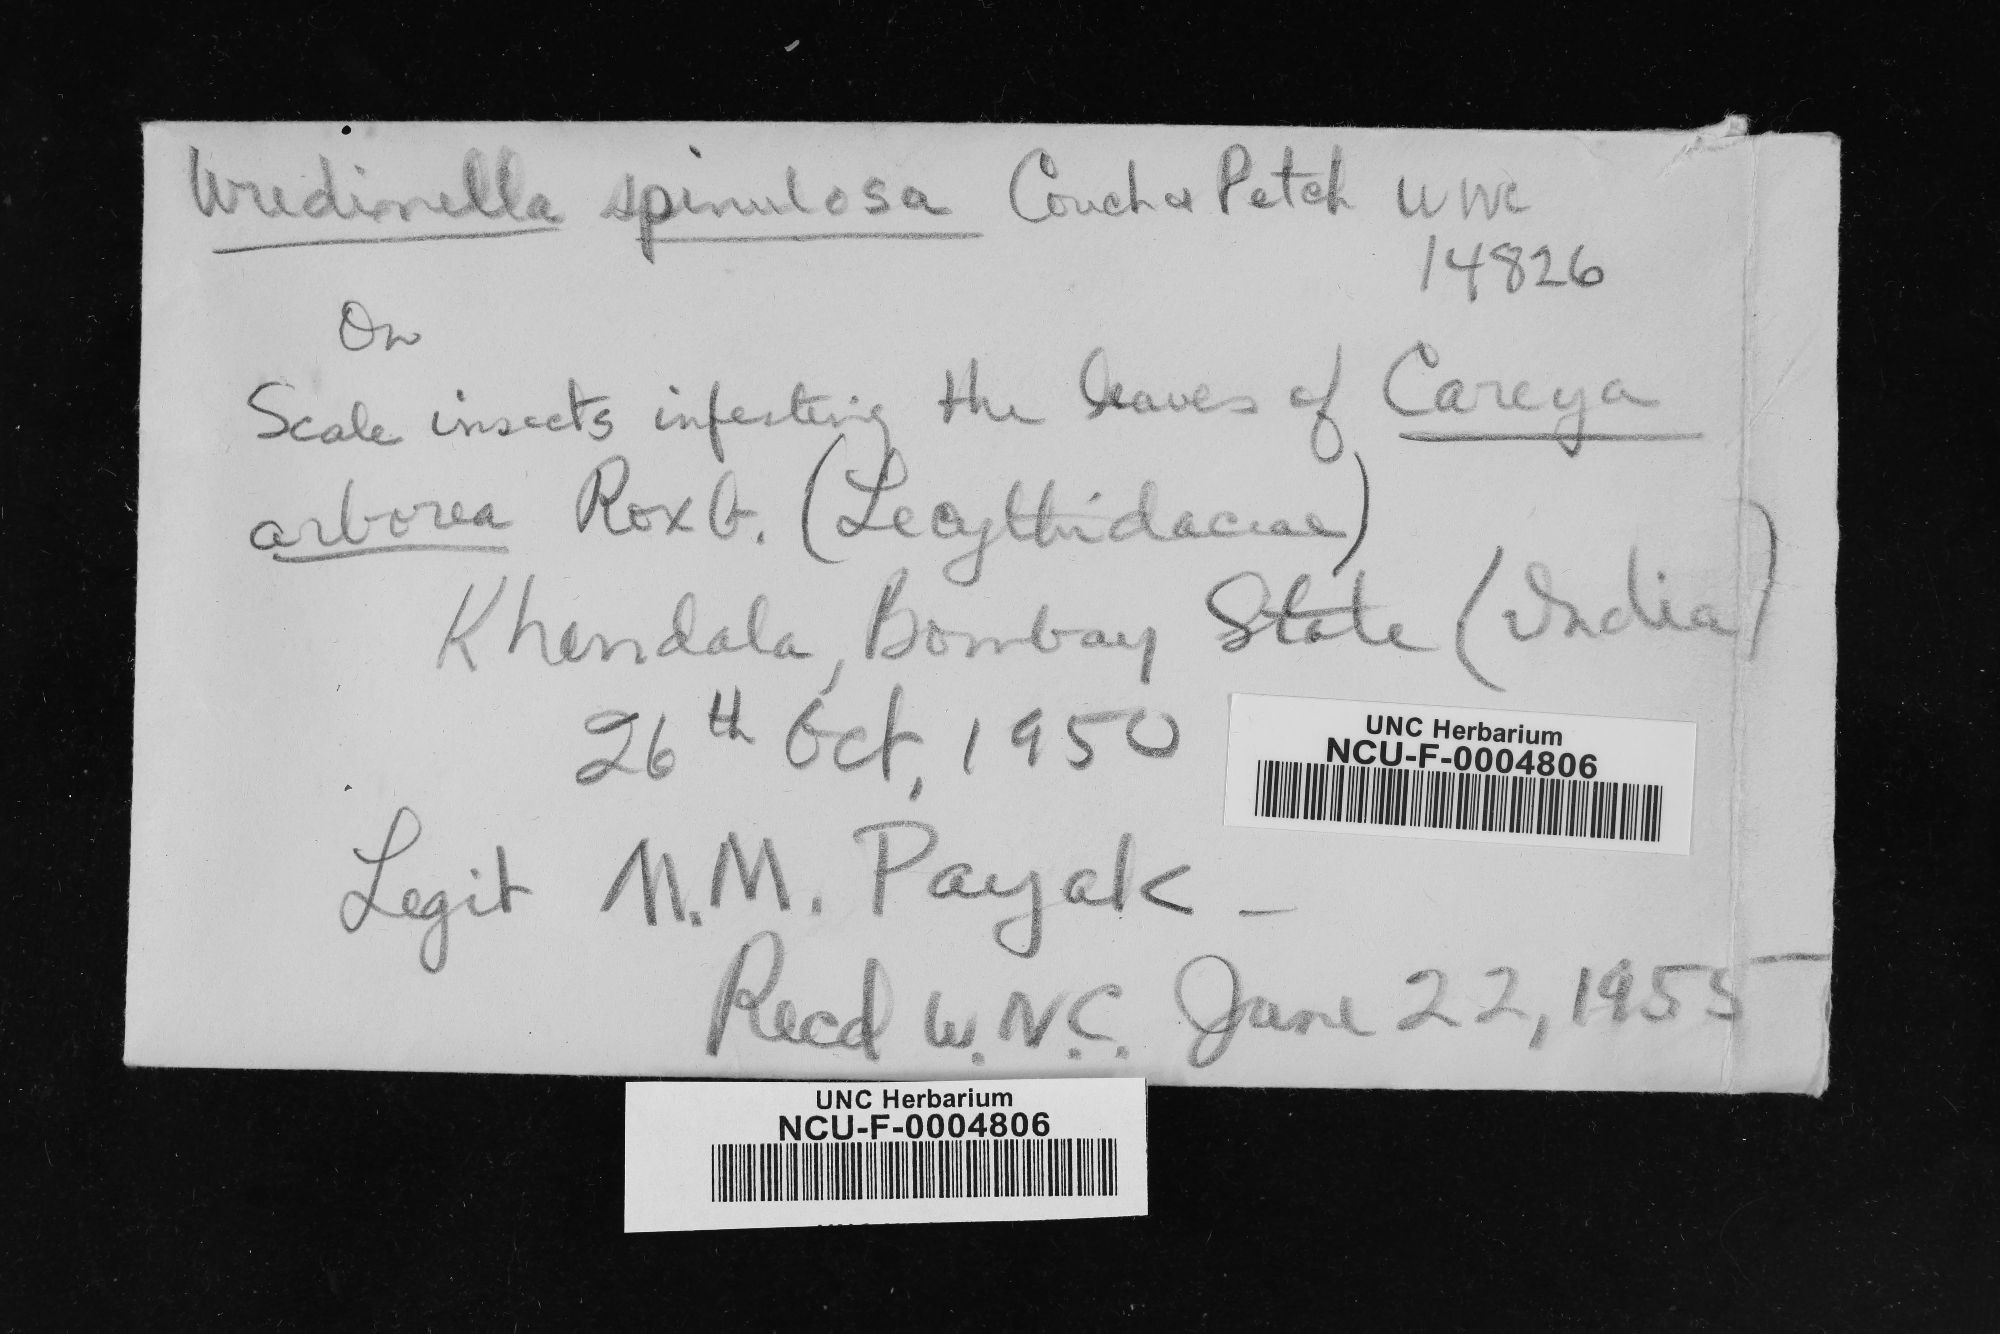 Uredinella spinulosa Couch & Petch UNC
14826
On
Scale insects infesting the leaves of Careya
arborea Roxb. (Lecythidaceae)
Khandala, Bombay State (India)
26th Oct, 1950
UNC Herbarium
NCU-F-0004806
Legit M.M. Payak -
Recd W.N.C. June 22, 1955
UNC Herbarium
NCU-F-0004806